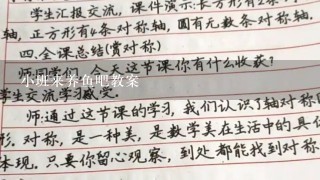 学生汇报交流，课件演示：长方形有2条
轴，正方形有4条对称轴，圆有无数条对称轴.
四.全课总结(赏对称)
师:同学们，今天这节课你有什么收获？
小班来养鱼吧教案
学生交流学习感受.
师:通过这节课的学习，我们认识了轴对称图
形.对称，是一种美，是数学美在生活中的具体
体现.只要你留心观察，到处都能找到对称